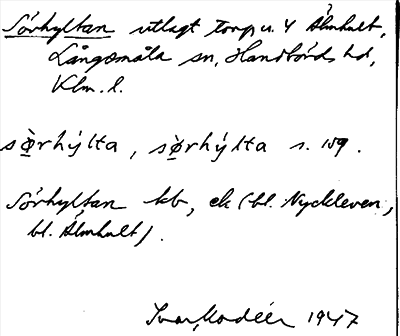 Sörhyltan utlagt torp u. 4 Älmhult,
Långemåla sn, Handbörds hd,
Klm. l.
sø̀rhýlta, sø̀rhýlta s. 159.
Sörhyltan kb, ek (bl. Nyckleven,
bl. Älmhult).
Ivar Modéer 1947